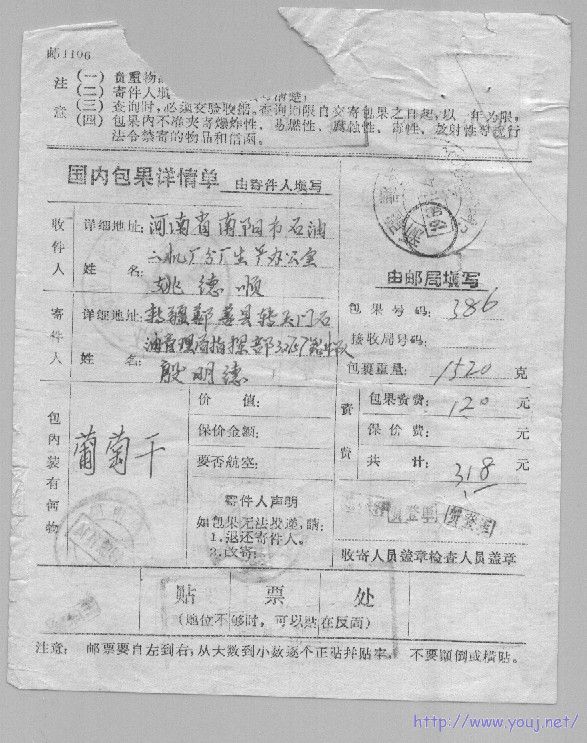 邮1106
注意
(一) 贵重物
(二) 寄件人填
(三) 查询时,必须交验收据。查询期限自交寄包裹之日起,以一年为限。
(四) 包裹内不准夹寄爆炸性、易燃性、腐蚀性、毒性、放射性等或行
法令禁寄的物品和信函。
国内包果详情单 由寄件人填写
收件人
详细地址: 河南省南阳市石油
二机厂分厂生产办公室
姓名: 姚德顺
寄件人
详细地址: 新疆鄯善县转玉门石
油管理局指挥部
姓名: 殷明德
包内装有何物
葡萄干
价值:
保价金额:
要否航空:
寄件人声明
如包果无法投递,請:
1.退还寄件人。
2.改寄:
由邮局填写
包果号码: 386
接收局号码:
包裹重量: 1520 克
资费
包果资费: 120 元
保价费: 元
共计: 318 元
收寄人员盖章检查人员盖章
贴票处
(地位不够时,可以贴在反面)
注意: 邮票要自左到右,从大数到小数逐个正贴并贴牢, 不要颠倒或横贴。
http://www.youj.net/